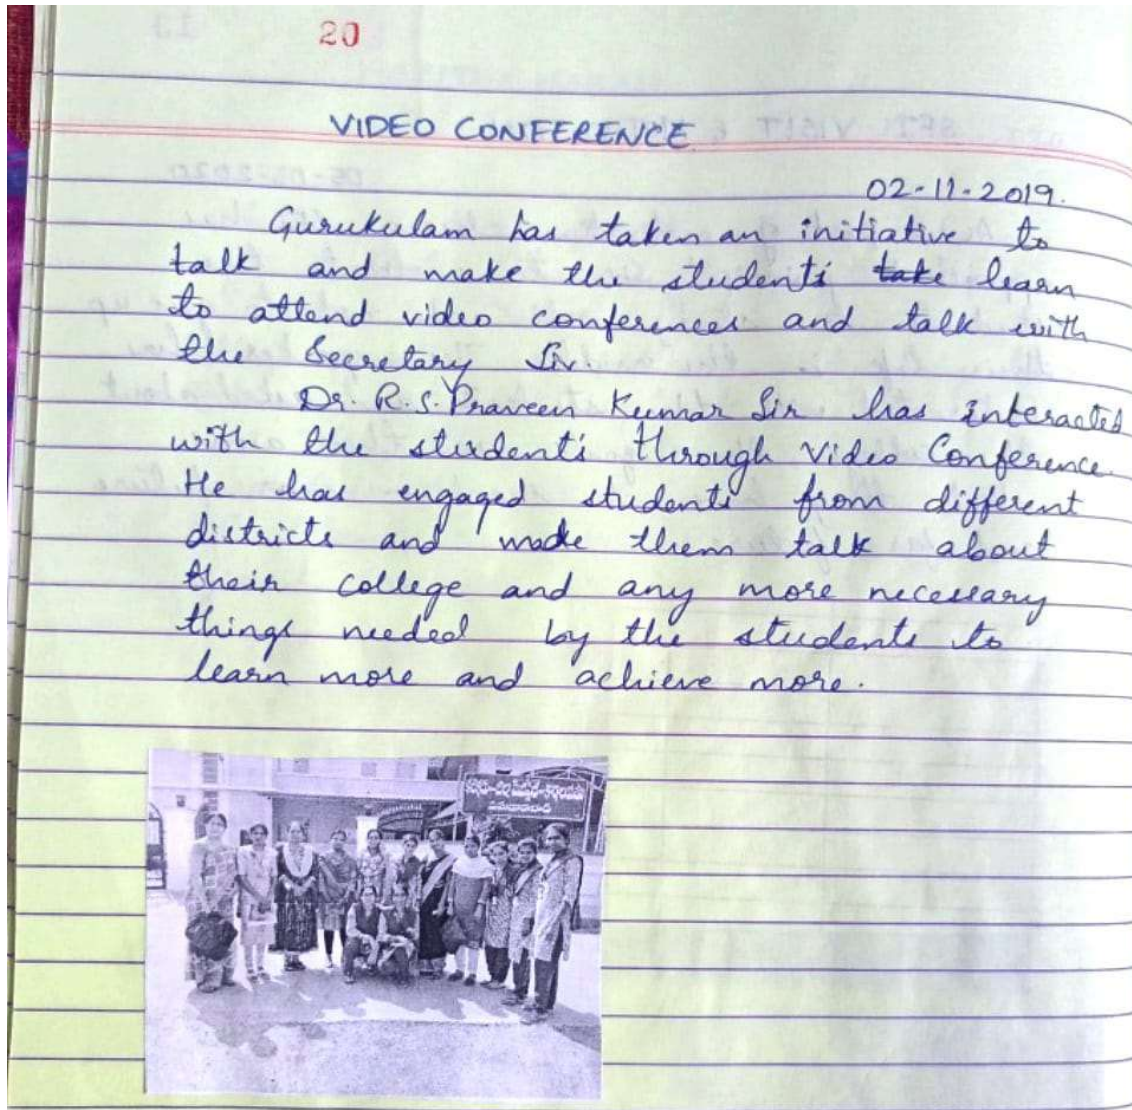 20
VIDEO CONFERENCE
02-11-2019.
Gurukulam has taken an initiative to
talk and make the students take learn
to attend video conferences and talk with
the Secretary Sir.
Dr. R.S. Praveen Kumar Sir has interacted
with the students through Video Conference.
He has engaged students from different
districts and made them talk about
their college and any more necessary
things needed by the students to
learn more and achieve more.